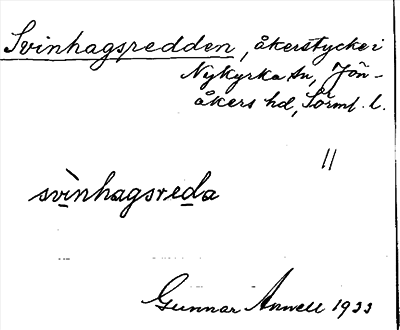 Svinhagsredden, åkerstycke i
Nykyrka sn, Jön-
åkers hd, Sörml. l.
"
svìnhagsreda
Gunnar Anwell 1933